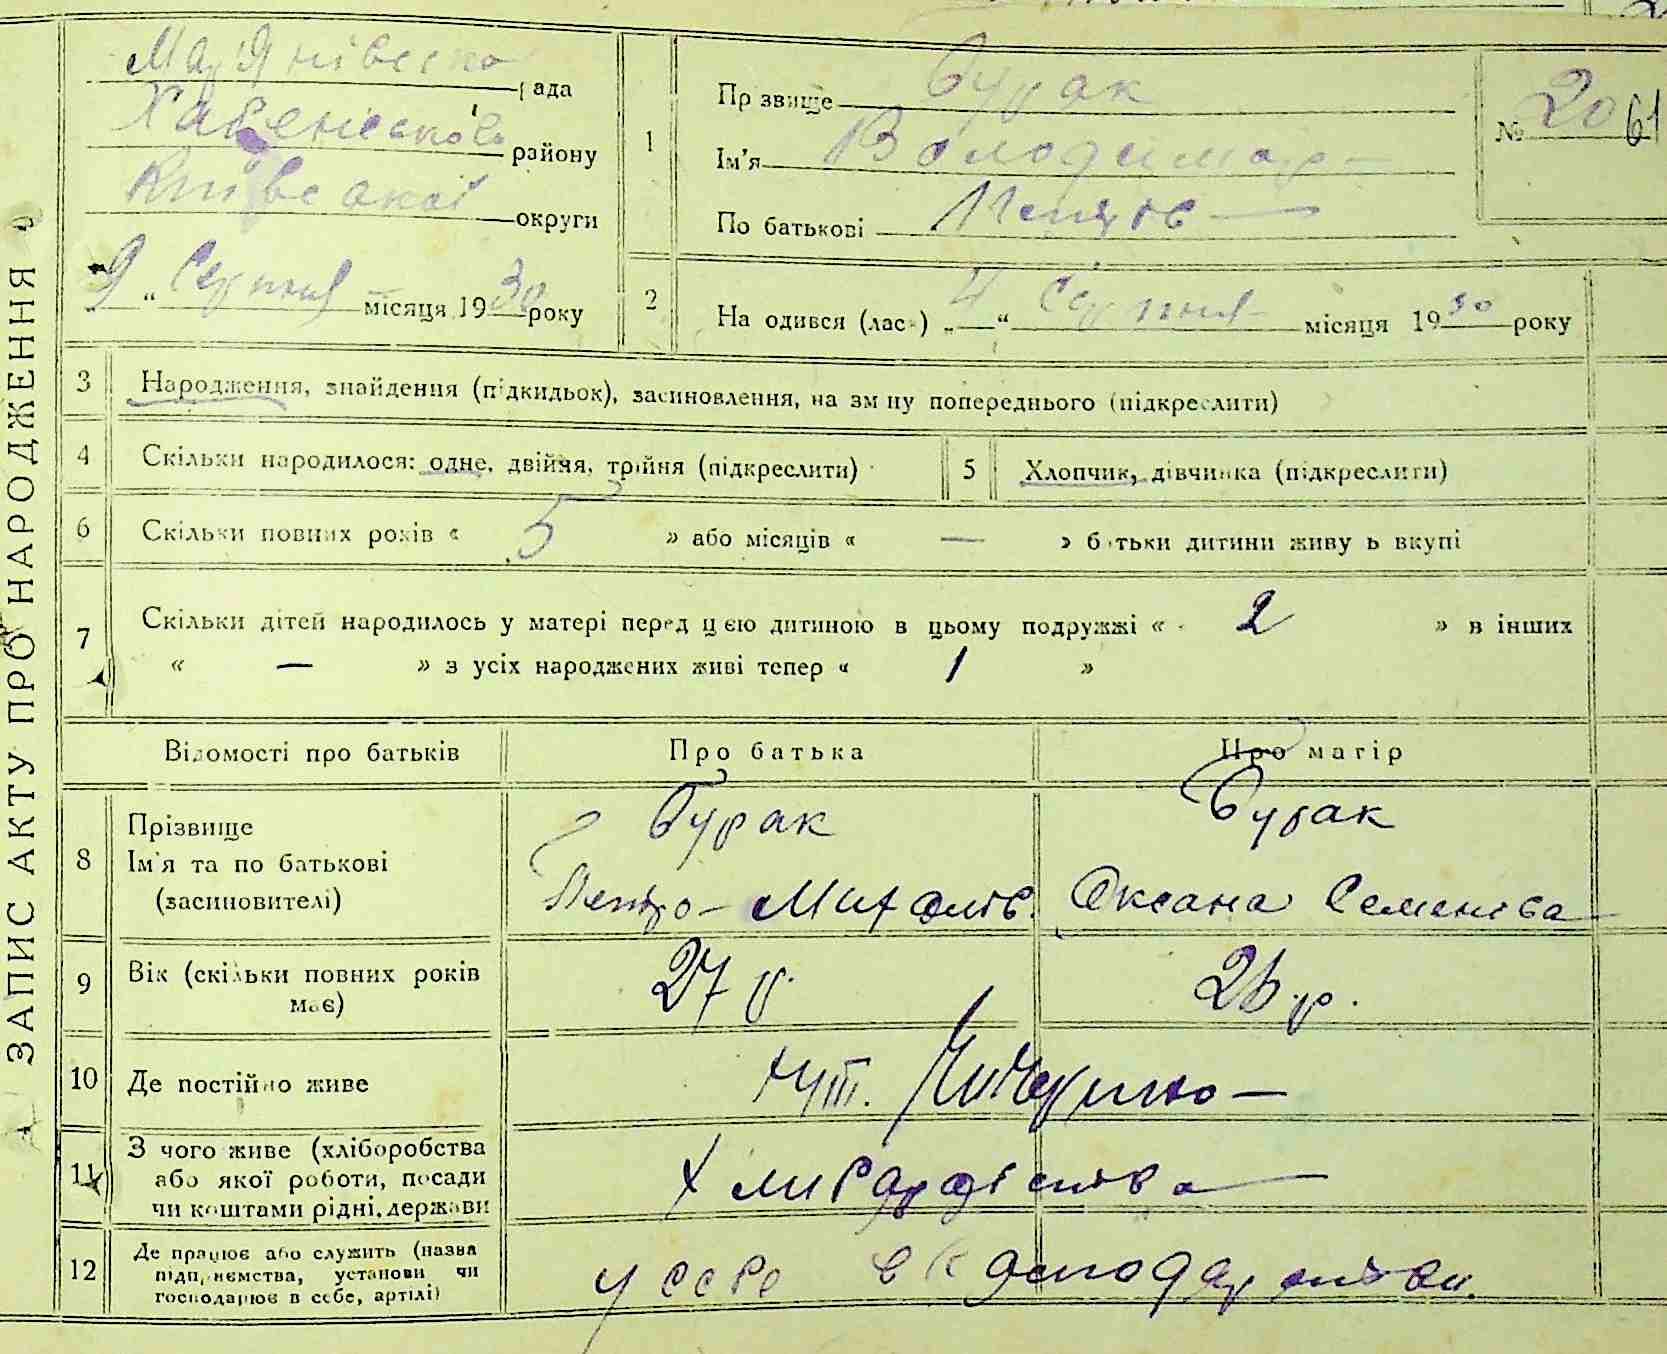 ЗАПИС АКТУ ПРО НАРОДЖЕННЯ
Мар'янівська рада
Хабенського району
Київської округи
„9“ Серпня місяця 1930 року
№ 20 61
1 Прізвище Бурак
Ім'я Володимир
По батькові Петрів
2 Народився (лась) „4“ Серпня місяця 1930 року
3 Народження, знайдення (підкидьок), засиновлення, на зміну попереднього (підкреслити)
4 Скільки народилося: одне, двійня, трійня (підкреслити) 5 Хлопчик, дівчинка (підкреслити)
6 Скільки повних років « 5 » або місяців « — » батьки дитини живуть вкупі
7 Скільки дітей народилось у матері перед цією дитиною в цьому подружжі « 2 » в інших
« — » з усіх народжених живі тепер « 1 »
Відомості про батьків Про батька Про матір
8 Прізвище Бурак Бурак
Ім'я та по батькові Петро Михалів. Оксана Семенова
(засиновителі)
9 Вік (скільки повних років має) 27 р. 26 р.
10 Де постійно живе хут.
11 З чого живе (хліборобства
або якої роботи, посади
чи коштами рідні, держави
12 Де працює або служить (назва
підприємства, установи чи
господарює в себе, артілі)
у себе в господарстви.